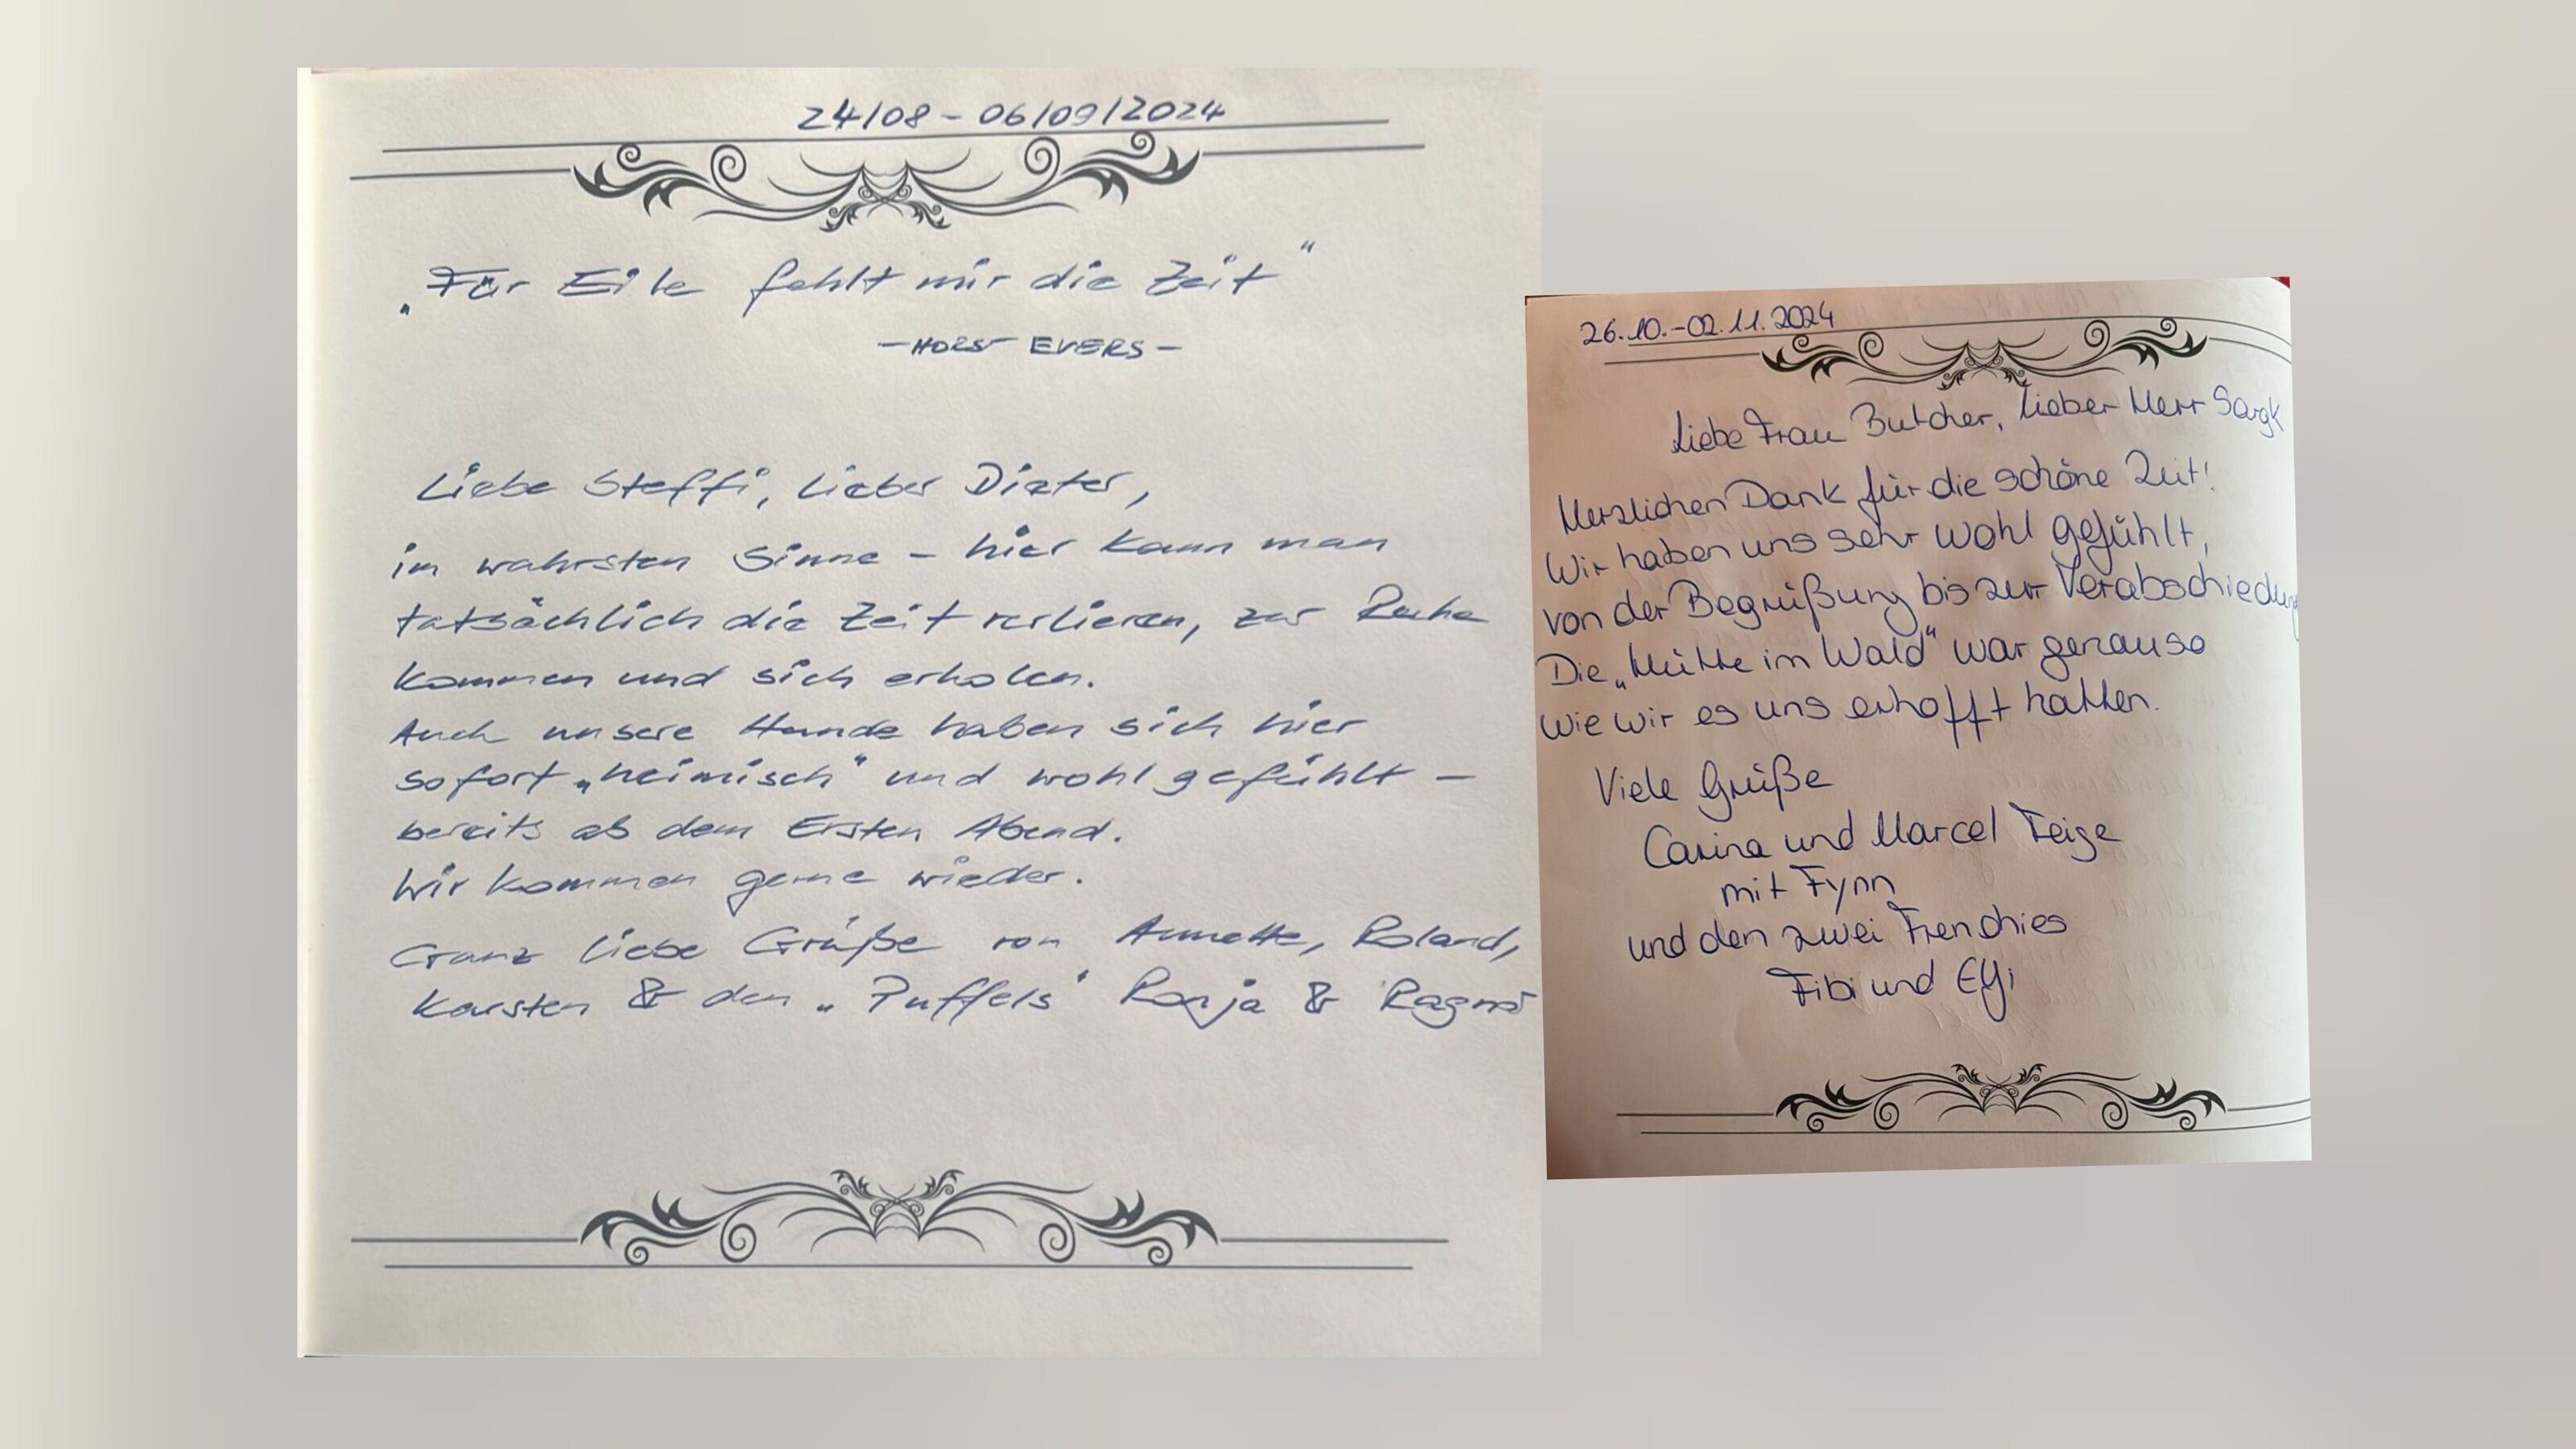 24/08 - 06/09/2024
„Für Eile fehlt mir die Zeit“
- HORST EVERS -
Liebe Steffi, Lieber Dieter,
im wahrsten Sinne - hier kann man
tatsächlich die Zeit verlieren, zur Ruhe
kommen und sich erholen.
Auch unsere Hunde haben sich hier
sofort „heimisch“ und wohl gefühlt -
bereits ab dem Ersten Abend.
Wir kommen gerne wieder.
Ganz liebe Grüße von Annette, Roland,
Karsten & den „Puffels“ Ronja &
26.10.-02.11.2024
Liebe Frau Butcher, Lieber Herr Sargk
Herzlichen Dank für die schöne Zeit!
Wir haben uns sehr wohl gefühlt,
von der Begrüßung bis zur Verabschiedung
Die „Hütte im Wald“ war genauso
wie wir es uns erhofft hatten.
Viele Grüße
Carina und Marcel Feige
mit Fynn
und den zwei Frenchies
Fibi und